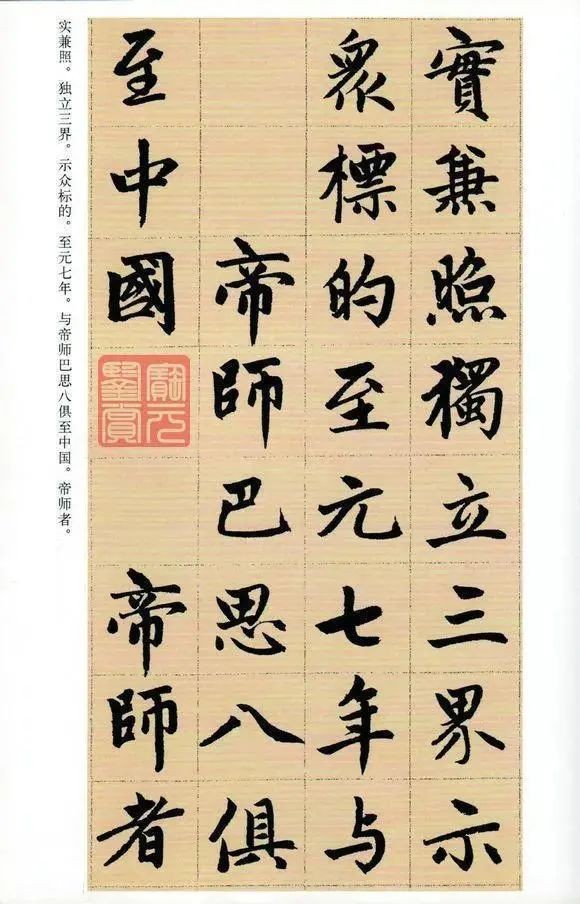 實兼照獨立三界示
衆標的至元七年与
帝師巴思八俱
至中國
帝師者
实兼照。独立三界。示众标的。至元七年。与帝师巴思八俱至中国。帝师者。